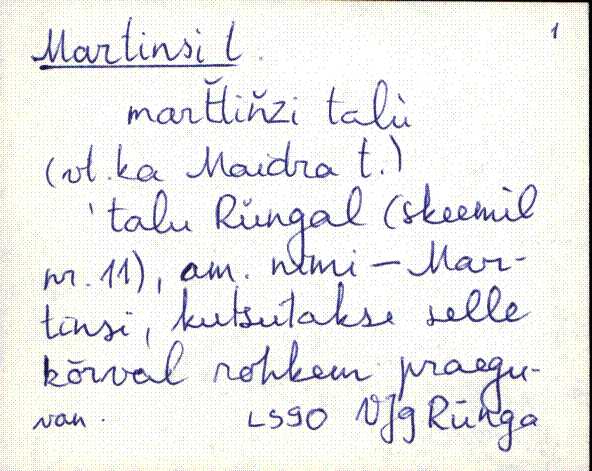 Martinsi t. 1
mart̆tin̆zi talù
(vt. ka Maidra t.)
'talu Rüngal (skeemil
nr. 11), am. nimi – Mar-
tinsi, kutsutakse selle
kõrval rohkem praegu-
van. LS90 VJg Rünga